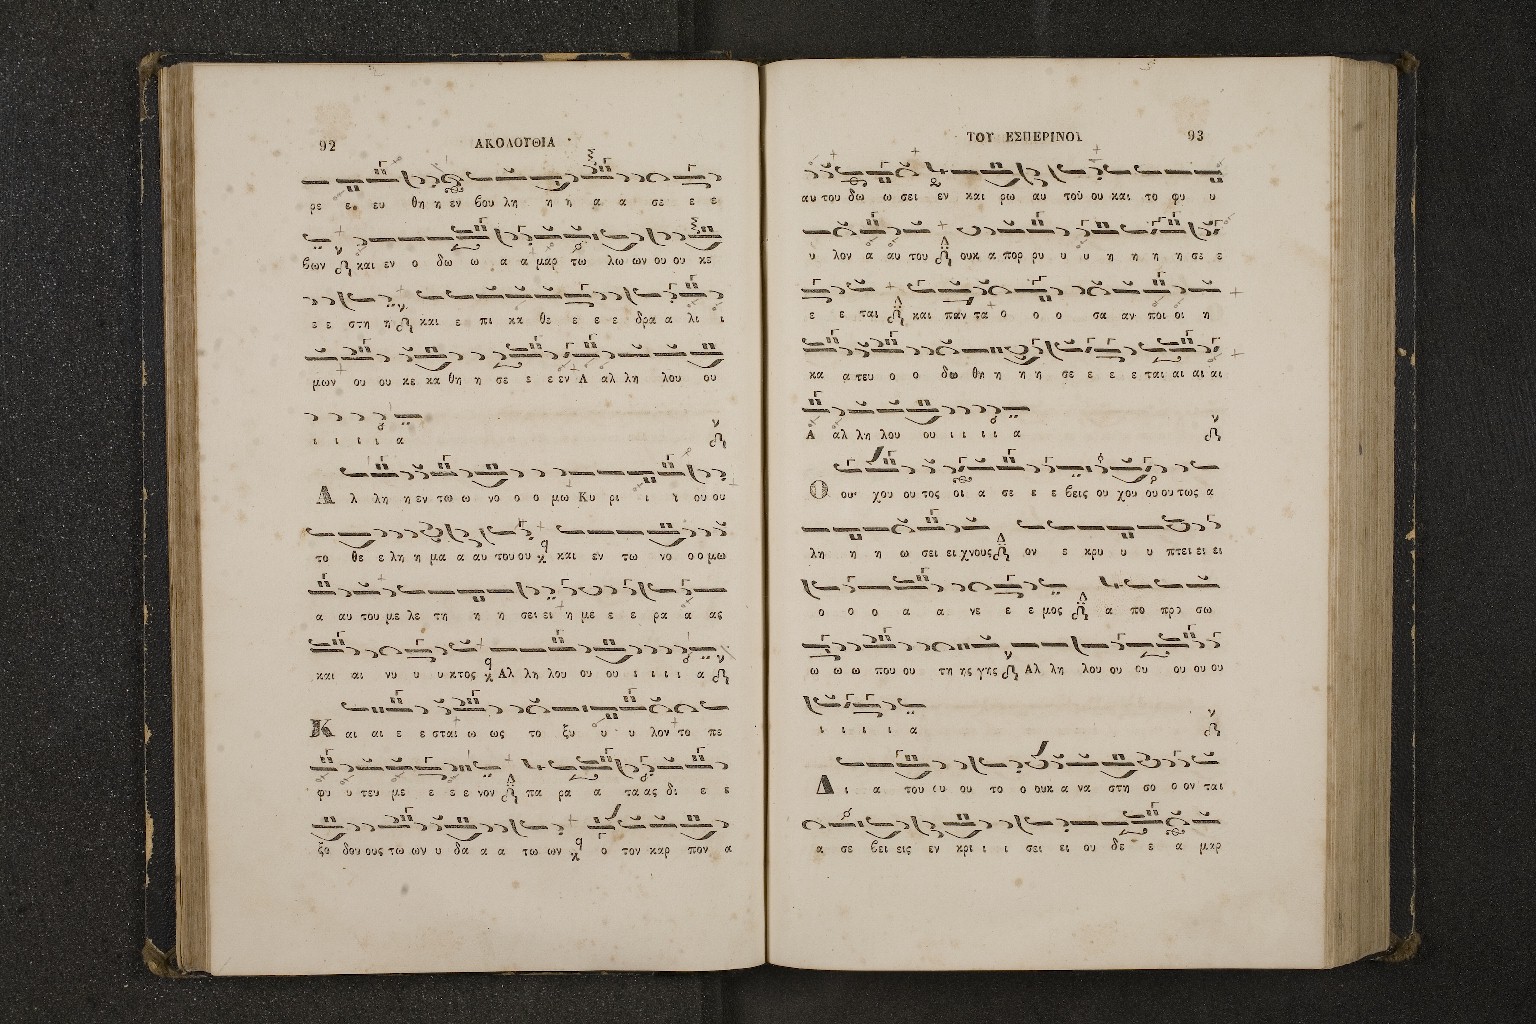 92
ΑΚΟΛΟΥΘΙΑ
ρε ε ευ θη η εν βου λη η η α α σε ε ε
βων και εν ο δω ω α α μαρ τω λω ων ου ου κε
ε ε στη η και ε πι κα θε ε ε ε δρα α λι ι
μων ου ου κε κα θη η σε ε ε εν Α αλ λη λου ου
ι ι ι ι α
Α λ λη η εν τω ω νο ο ο μω Κυ ρι ι ου ου
το θε ε λη η μα α αυ του ου και εν τω νο ο ο μω
α αυ του με λε τη η η σει ει η με ε ε ρα α ας
και αι νυ υ υ κτος Αλ λη λου ου ου ι ι ι ι α
Κ αι αι ε ε σται ω ως το ξυ υ υ λον το πε
φυ υ τευ με ε ε ε νον πα ρα α τα ας δι ε ε
ξο δου ους τω ων υ δα α α τω ων ο τον καρ πον α
ΤΟΥ ΕΣΠΕΡΙΝΟΥ
93
αυ του δω ω σει εν και ρω αυ του ου και το φυ υ
υ λον α αυ του ουκ α πορ ρυ υ υ η η η η σε ε
ε ε ται και παν τα ο ο ο σα αν ποι οι η
κα α τευ ο ο δω θη η η η σε ε ε ε ται αι αι αι
Α αλ λη λου ου ι ι ι ι α
Ο ου χου ου τος οι α σε ε ε βεις ου χου ου ου τως α
λη η η ω σει ει χνους ον ε κρυ υ υ πτει ει ει
ο ο ο α α νε ε ε μος α πο προ σω
ω ω ω που ου τη ης γης Αλ λη λου ου ου ου ου ου
ι ι ι ι α
Δ ι α του ου ου το ο ουκ α να στη σο ο ον ται
α σε βει εις εν κρι ι ι σει ει ου δε ε α μαρ